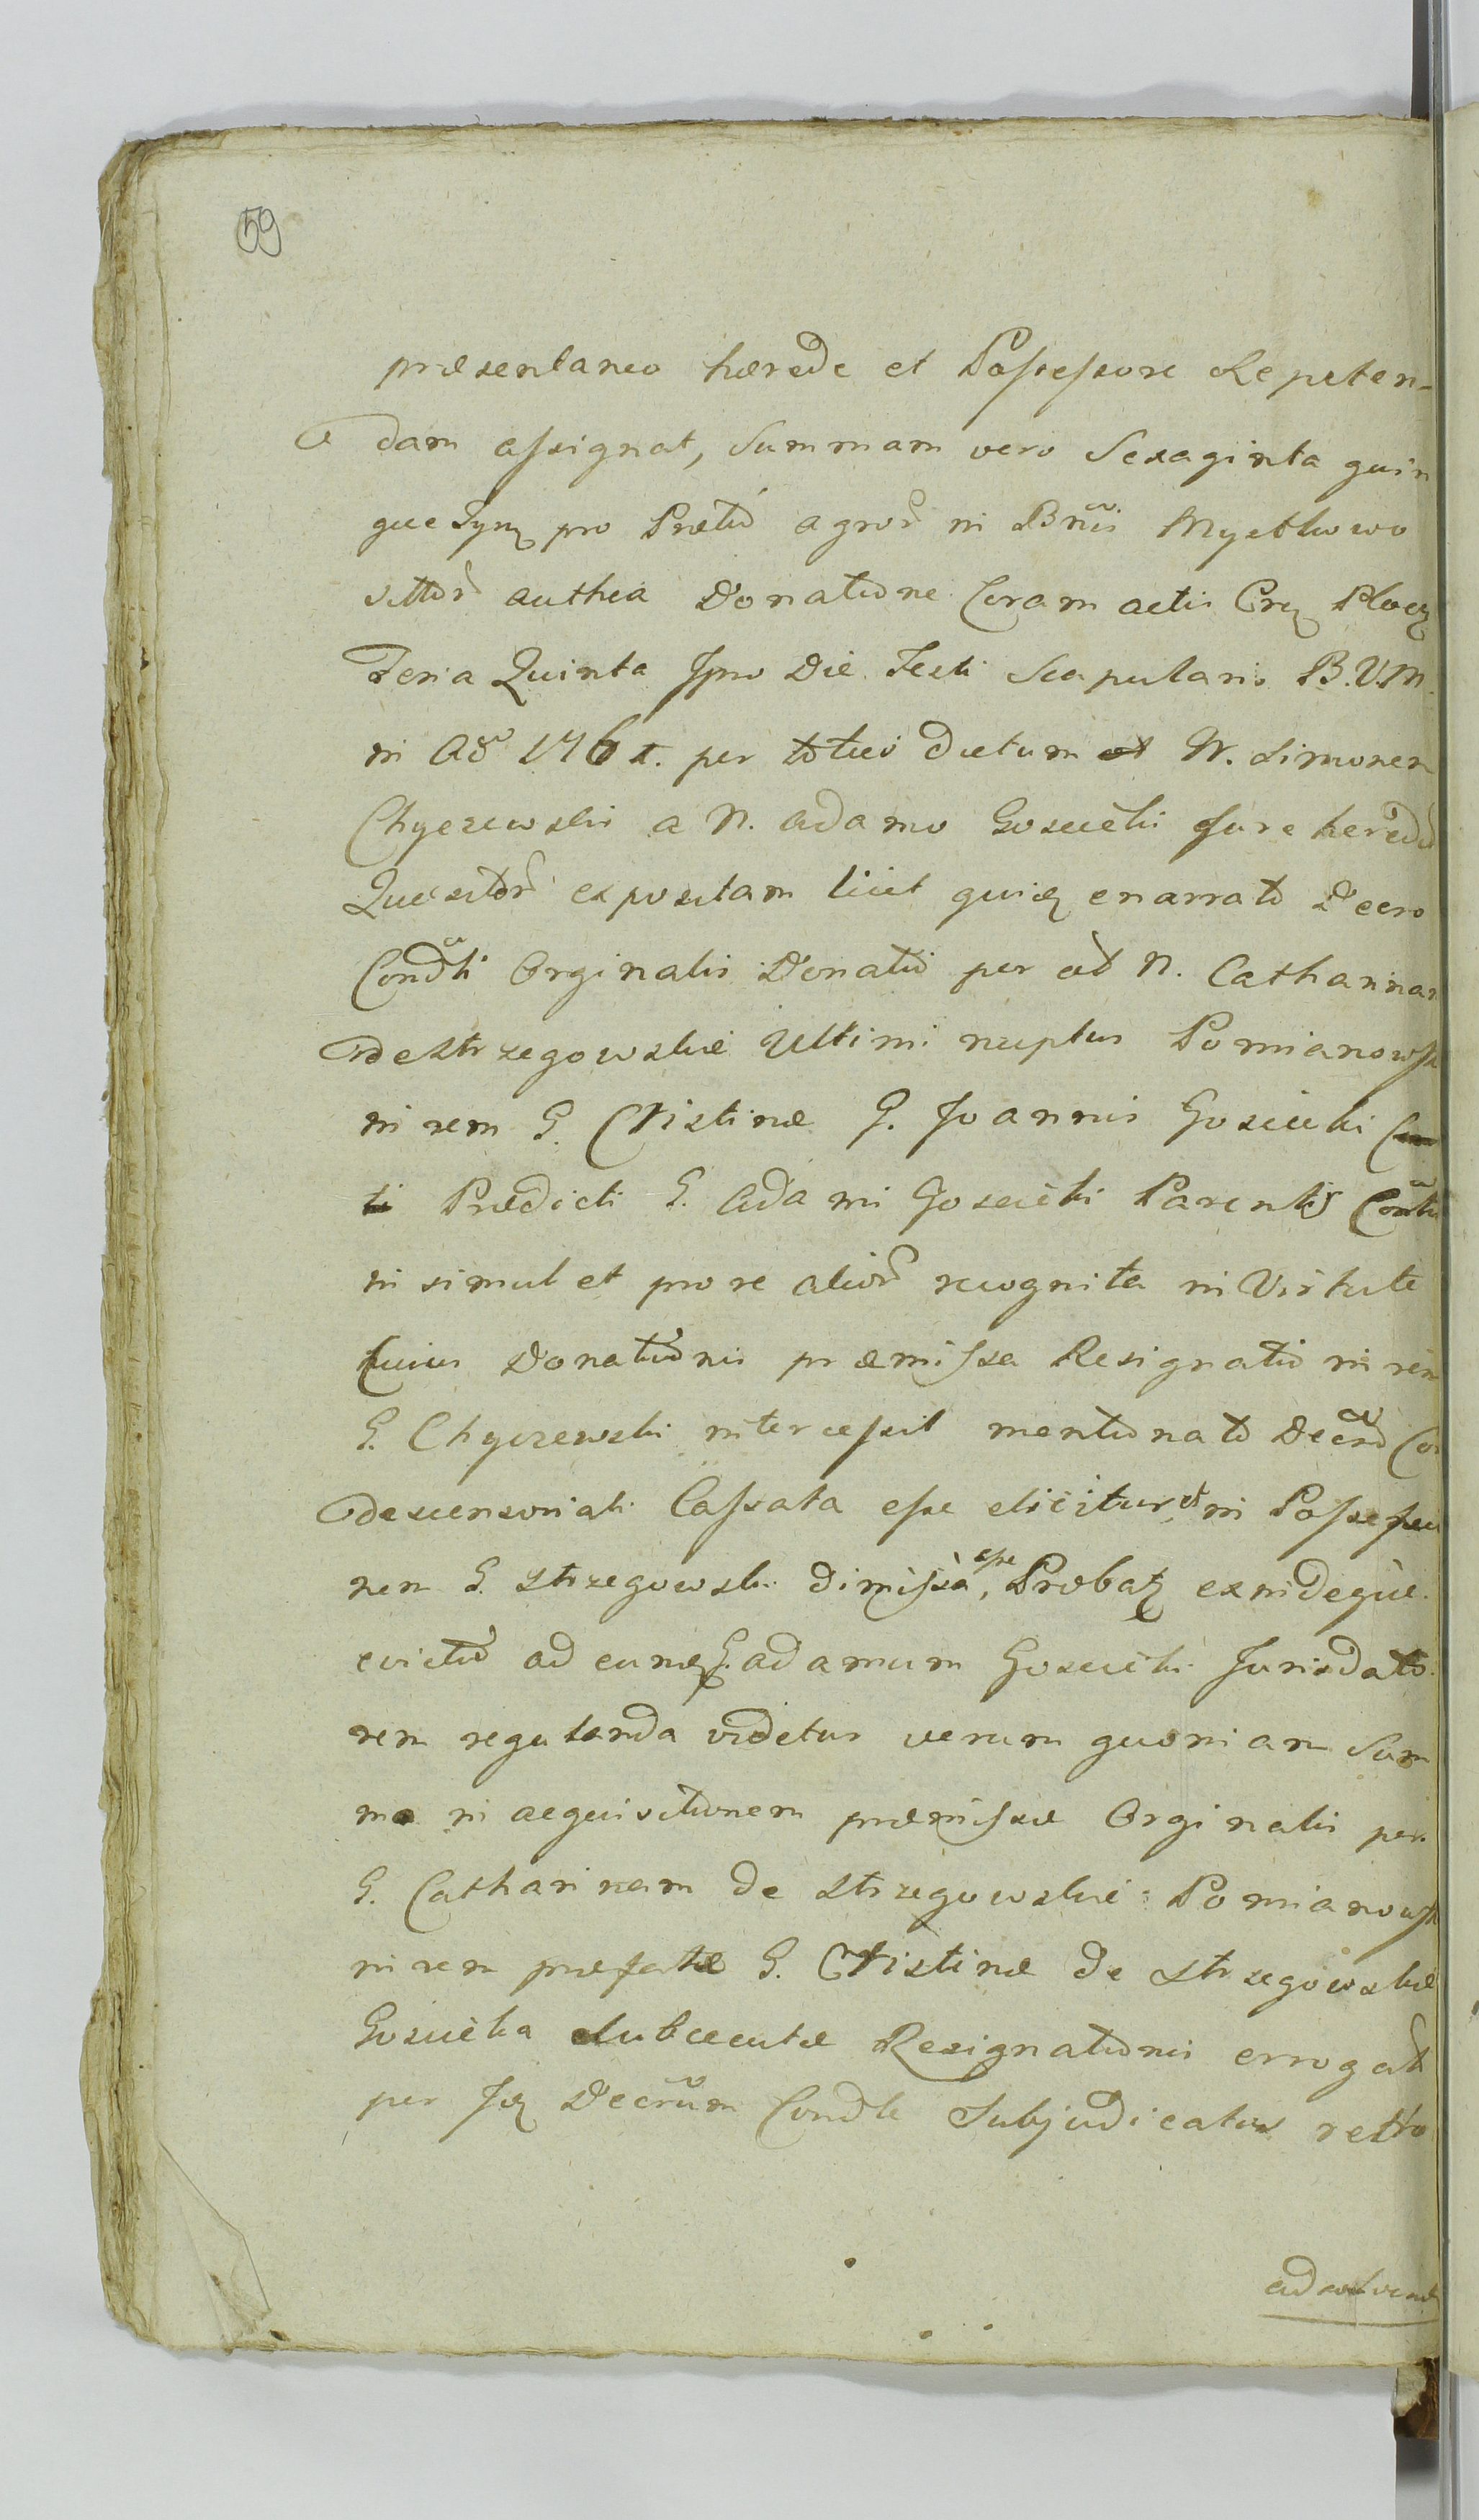 59
præsentaneo hærede et Possessore Repeten-
dam assignat, Summam vero Sexaginta quin
que Tynf pro Prætio agror in Bnis Mystkowo
sittor authea Donatione Coram actis Crz Plocz
Feria Quinta Ipso Die Festi Scapularis B.V.M.
in Ao 1761. per totius dictum N. Simonem
Chyczewski a N. Adamo Goscicki Jure heredit
Quesitor expositam licet quidz enarrato Decro
Condli Orginalis Donatio per N. Catharinam
de Strzegowskie Ultimi nuptus Pomianowsk
in rem G. Cristinæ G. Joannis Goscicki
Prædicti G. Adami Goscicki Parentis
in simul et pro re alior recognita in Virtute
cuius Donationis præmissa Resignatio in rem
G. Chyczewski intercessit mentionato Decro Con
descensoriali Cassata esse elicitur et in Possessio
nem G. Strzegowski dimissa esse, Probatz exindeque
evictio ad eundz G. Adamum Goscicki Jurisdato
rem regulanda videtur verum quoniam Sum
ma in acquisitionem præmissæ Orginalis per
G. Catharinam de Strzegowskie Pomianowsk
in rem præfatæ G. Cristinæ de Strzegowskie
Goscicka Subcecutæ Resignationis errogat
per Idz Decrum Condle Subjudicatur retro
adsolvend